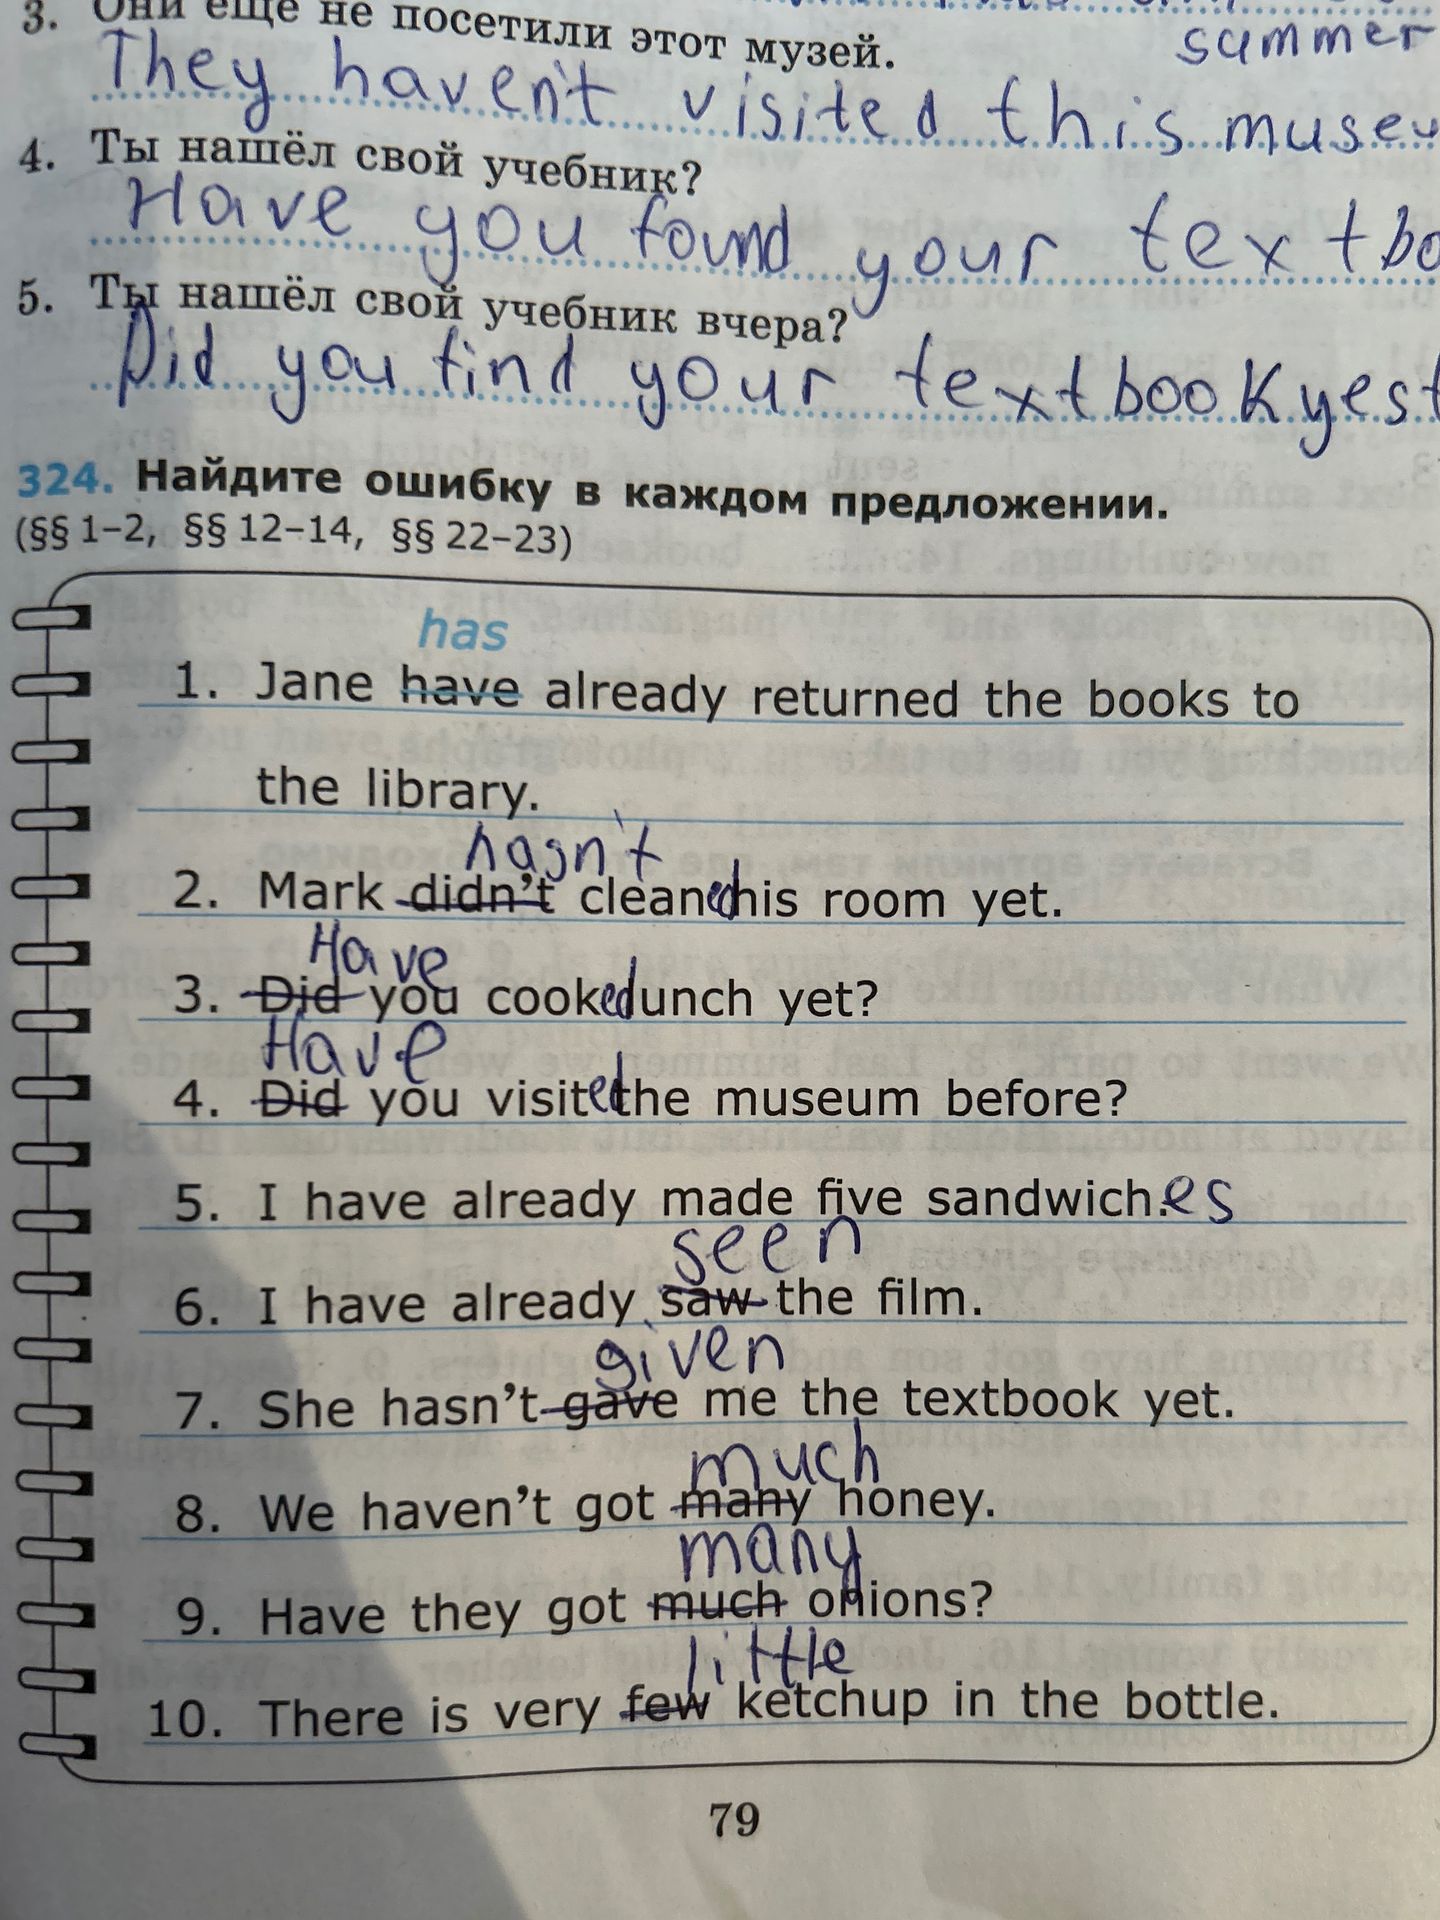 3. Они ещё не посетили этот музей.
summer
They haven't visited this museu
4. Ты нашёл свой учебник?
Have you found your textbo
5. Ты нашёл свой учебник вчера?
Did you find your textbook yest
324. Найдите ошибку в каждом предложении.
(§§ 1–2, §§ 12–14, §§ 22–23)
has
1. Jane have already returned the books to
the library.
hasn't
2. Mark didn't cleaned his room yet.
Have
3. Did you cooked lunch yet?
Have
4. Did you visited the museum before?
5. I have already made five sandwich.es
seen
6. I have already saw the film.
given
7. She hasn't gave me the textbook yet.
much
8. We haven't got many honey.
many
9. Have they got much onions?
little
10. There is very few ketchup in the bottle.
79